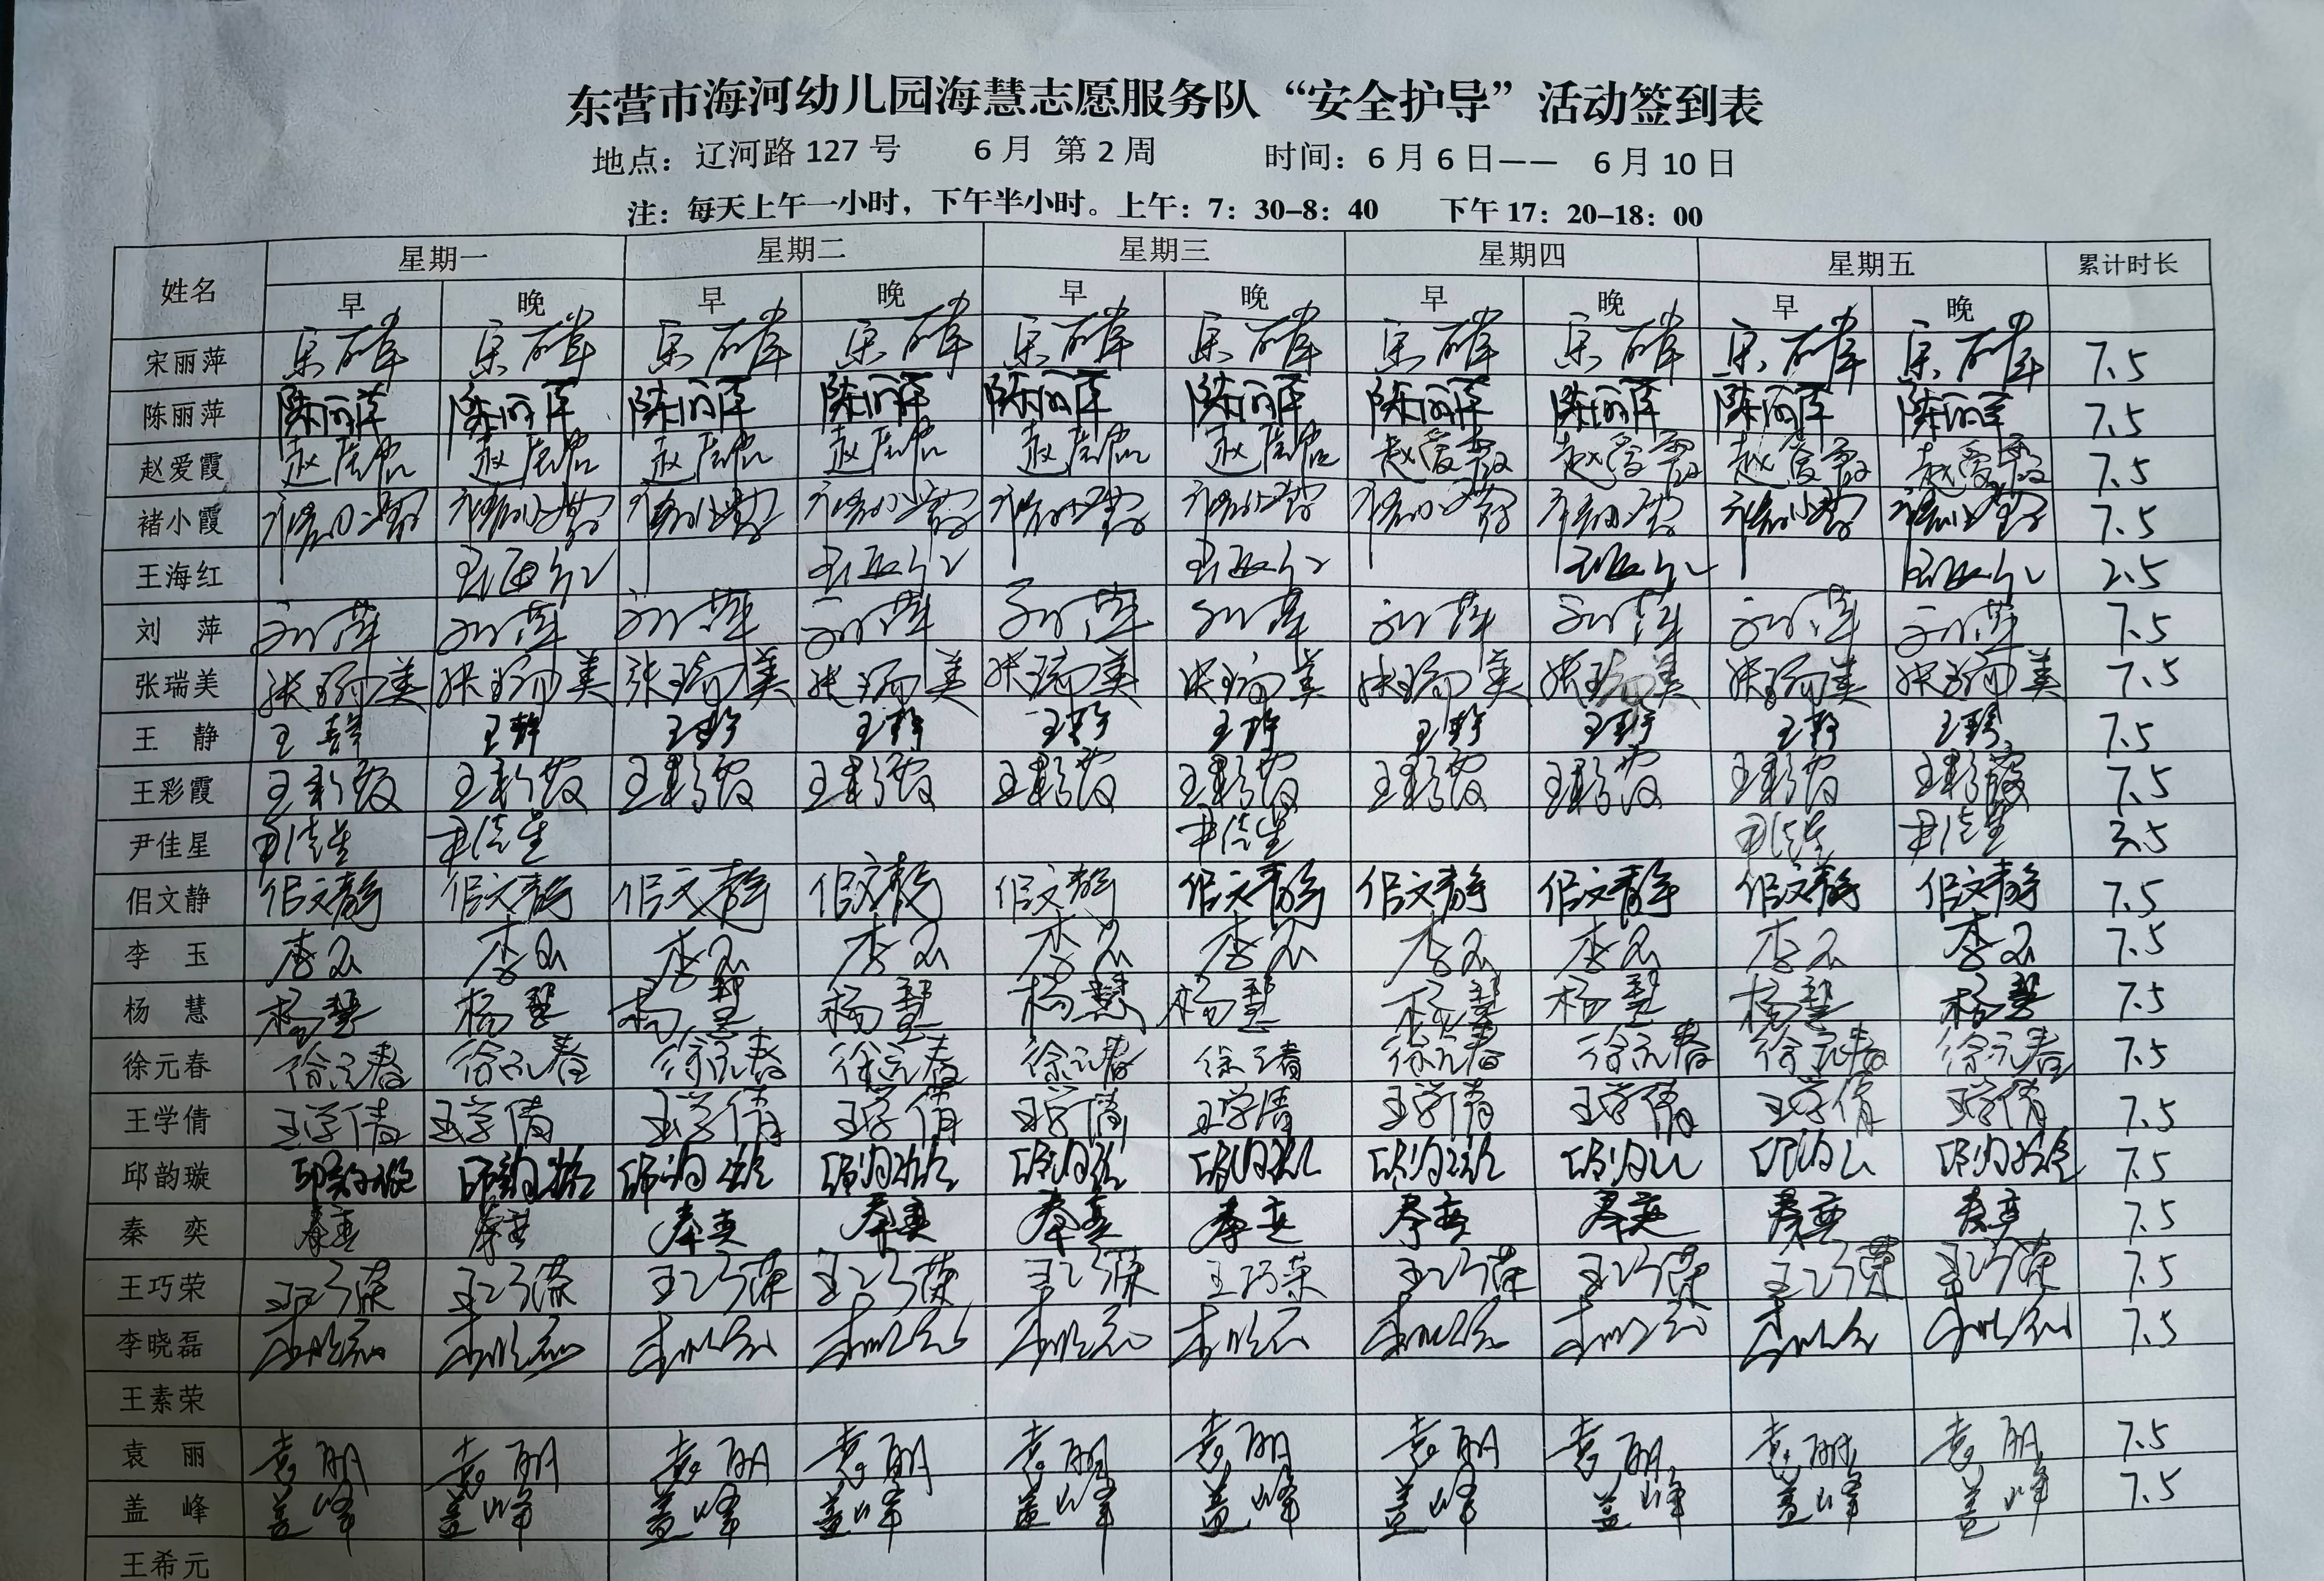 东营市海河幼儿园海慧志愿服务队“安全护导”活动签到表
地点：辽河路 127 号 6 月 第 2 周 时间：6 月 6 日—— 6 月 10 日
注：每天上午一小时，下午半小时。上午：7：30-8：40 下午 17：20-18：00
姓名 星期一 星期二 星期三 星期四 星期五 累计时长
早 晚 早 晚 早 晚 早 晚 早 晚
宋丽萍 宋丽萍 宋丽萍 宋丽萍 宋丽萍 宋丽萍 宋丽萍 宋丽萍 宋丽萍 宋丽萍 宋丽萍 7.5
陈丽萍 陈丽萍 陈丽萍 陈丽萍 陈丽萍 陈丽萍 陈丽萍 陈丽萍 陈丽萍 陈丽萍 陈丽萍 7.5
赵爱霞 赵爱霞 赵爱霞 赵爱霞 赵爱霞 赵爱霞 赵爱霞 赵爱霞 赵爱霞 赵爱霞 赵爱霞 7.5
褚小霞 褚小霞 褚小霞 褚小霞 褚小霞 褚小霞 褚小霞 褚小霞 褚小霞 褚小霞 褚小霞 7.5
王海红 王海红 王海红 王海红 王海红 王海红 2.5
刘 萍 刘萍 刘萍 刘萍 刘萍 刘萍 刘萍 刘萍 刘萍 刘萍 刘萍 7.5
张瑞美 张瑞美 张瑞美 张瑞美 张瑞美 张瑞美 张瑞美 张瑞美 张瑞美 张瑞美 张瑞美 7.5
王 静 王静 王静 王静 王静 王静 王静 王静 王静 王静 王静 7.5
王彩霞 王彩霞 王彩霞 王彩霞 王彩霞 王彩霞 王彩霞 王彩霞 王彩霞 王彩霞 王彩霞 7.5
尹佳星 尹佳星 尹佳星 尹佳星 尹佳星 尹佳星 3.5
佀文静 佀文静 佀文静 佀文静 佀文静 佀文静 佀文静 佀文静 佀文静 佀文静 佀文静 7.5
李 玉 李玉 李玉 李玉 李玉 李玉 李玉 李玉 李玉 李玉 李玉 7.5
杨 慧 杨慧 杨慧 杨慧 杨慧 杨慧 杨慧 杨慧 杨慧 杨慧 杨慧 7.5
徐元春 徐元春 徐元春 徐元春 徐元春 徐元春 徐元春 徐元春 徐元春 徐元春 徐元春 7.5
王学倩 王学倩 王学倩 王学倩 王学倩 王学倩 王学倩 王学倩 王学倩 王学倩 王学倩 7.5
邱韵璇 邱韵璇 邱韵璇 邱韵璇 邱韵璇 邱韵璇 邱韵璇 邱韵璇 邱韵璇 邱韵璇 邱韵璇 7.5
秦 奕 秦奕 秦奕 秦奕 秦奕 秦奕 秦奕 秦奕 秦奕 秦奕 秦奕 7.5
王巧荣 王巧荣 王巧荣 王巧荣 王巧荣 王巧荣 王巧荣 王巧荣 王巧荣 王巧荣 王巧荣 7.5
李晓磊 李晓磊 李晓磊 李晓磊 李晓磊 李晓磊 李晓磊 李晓磊 李晓磊 李晓磊 李晓磊 7.5
王素荣
袁 丽 袁丽 袁丽 袁丽 袁丽 袁丽 袁丽 袁丽 袁丽 袁丽 袁丽 7.5
盖 峰 盖峰 盖峰 盖峰 盖峰 盖峰 盖峰 盖峰 盖峰 盖峰 盖峰 7.5
王希元